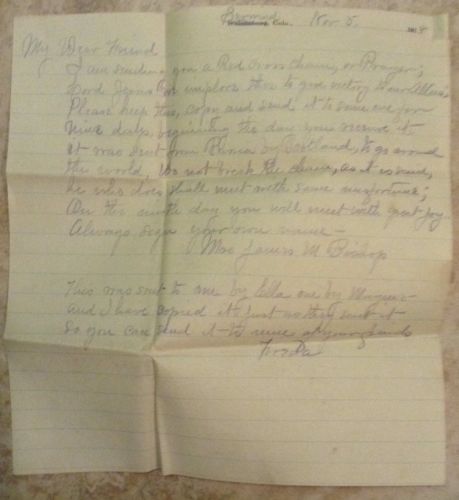 Nov 5. 1918
My Dear Friend
I am sending you a Red Cross chain, or Prayer;
Good Jesus We implore thee to give victory to our Allies,
Please keep this, copy and send it to some one for
Nine days, beginning the day you receive it
it was sent from to Scotland, to go around
the world, Do not break the chain, as it is said,
he who does shall meet with some misfortune;
On the ninth day you will meet with great joy
Always sign your own name—
Mrs James M Bishop
This was sent to me by Ella one by
and I have copied it just as they sent it
So you can send it to nine of your friends